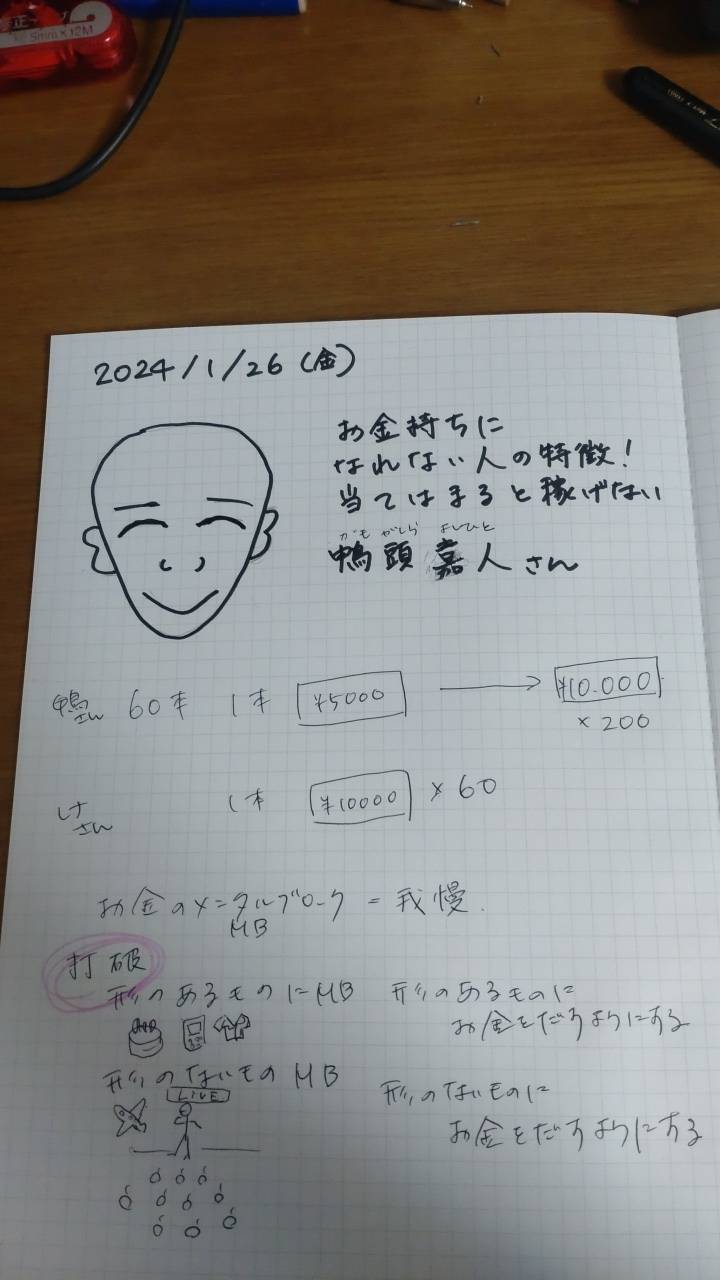 5mm×12M
2024/1/26(金)
お金持ちに
なれない人の特徴!
当てはまると稼げない
かもがしら よしひと
鴨頭嘉人さん
鴨さん 60本 1本 ¥5000 → ¥10.000
×200
さん 1本 ¥10000 ×60
お金のメンタルブロック = 我慢
MB
打破
形のあるものにMB 形のあるものに
お金をだすようにする
形のないものMB 形のないものに
お金をだすようにする
LIVE